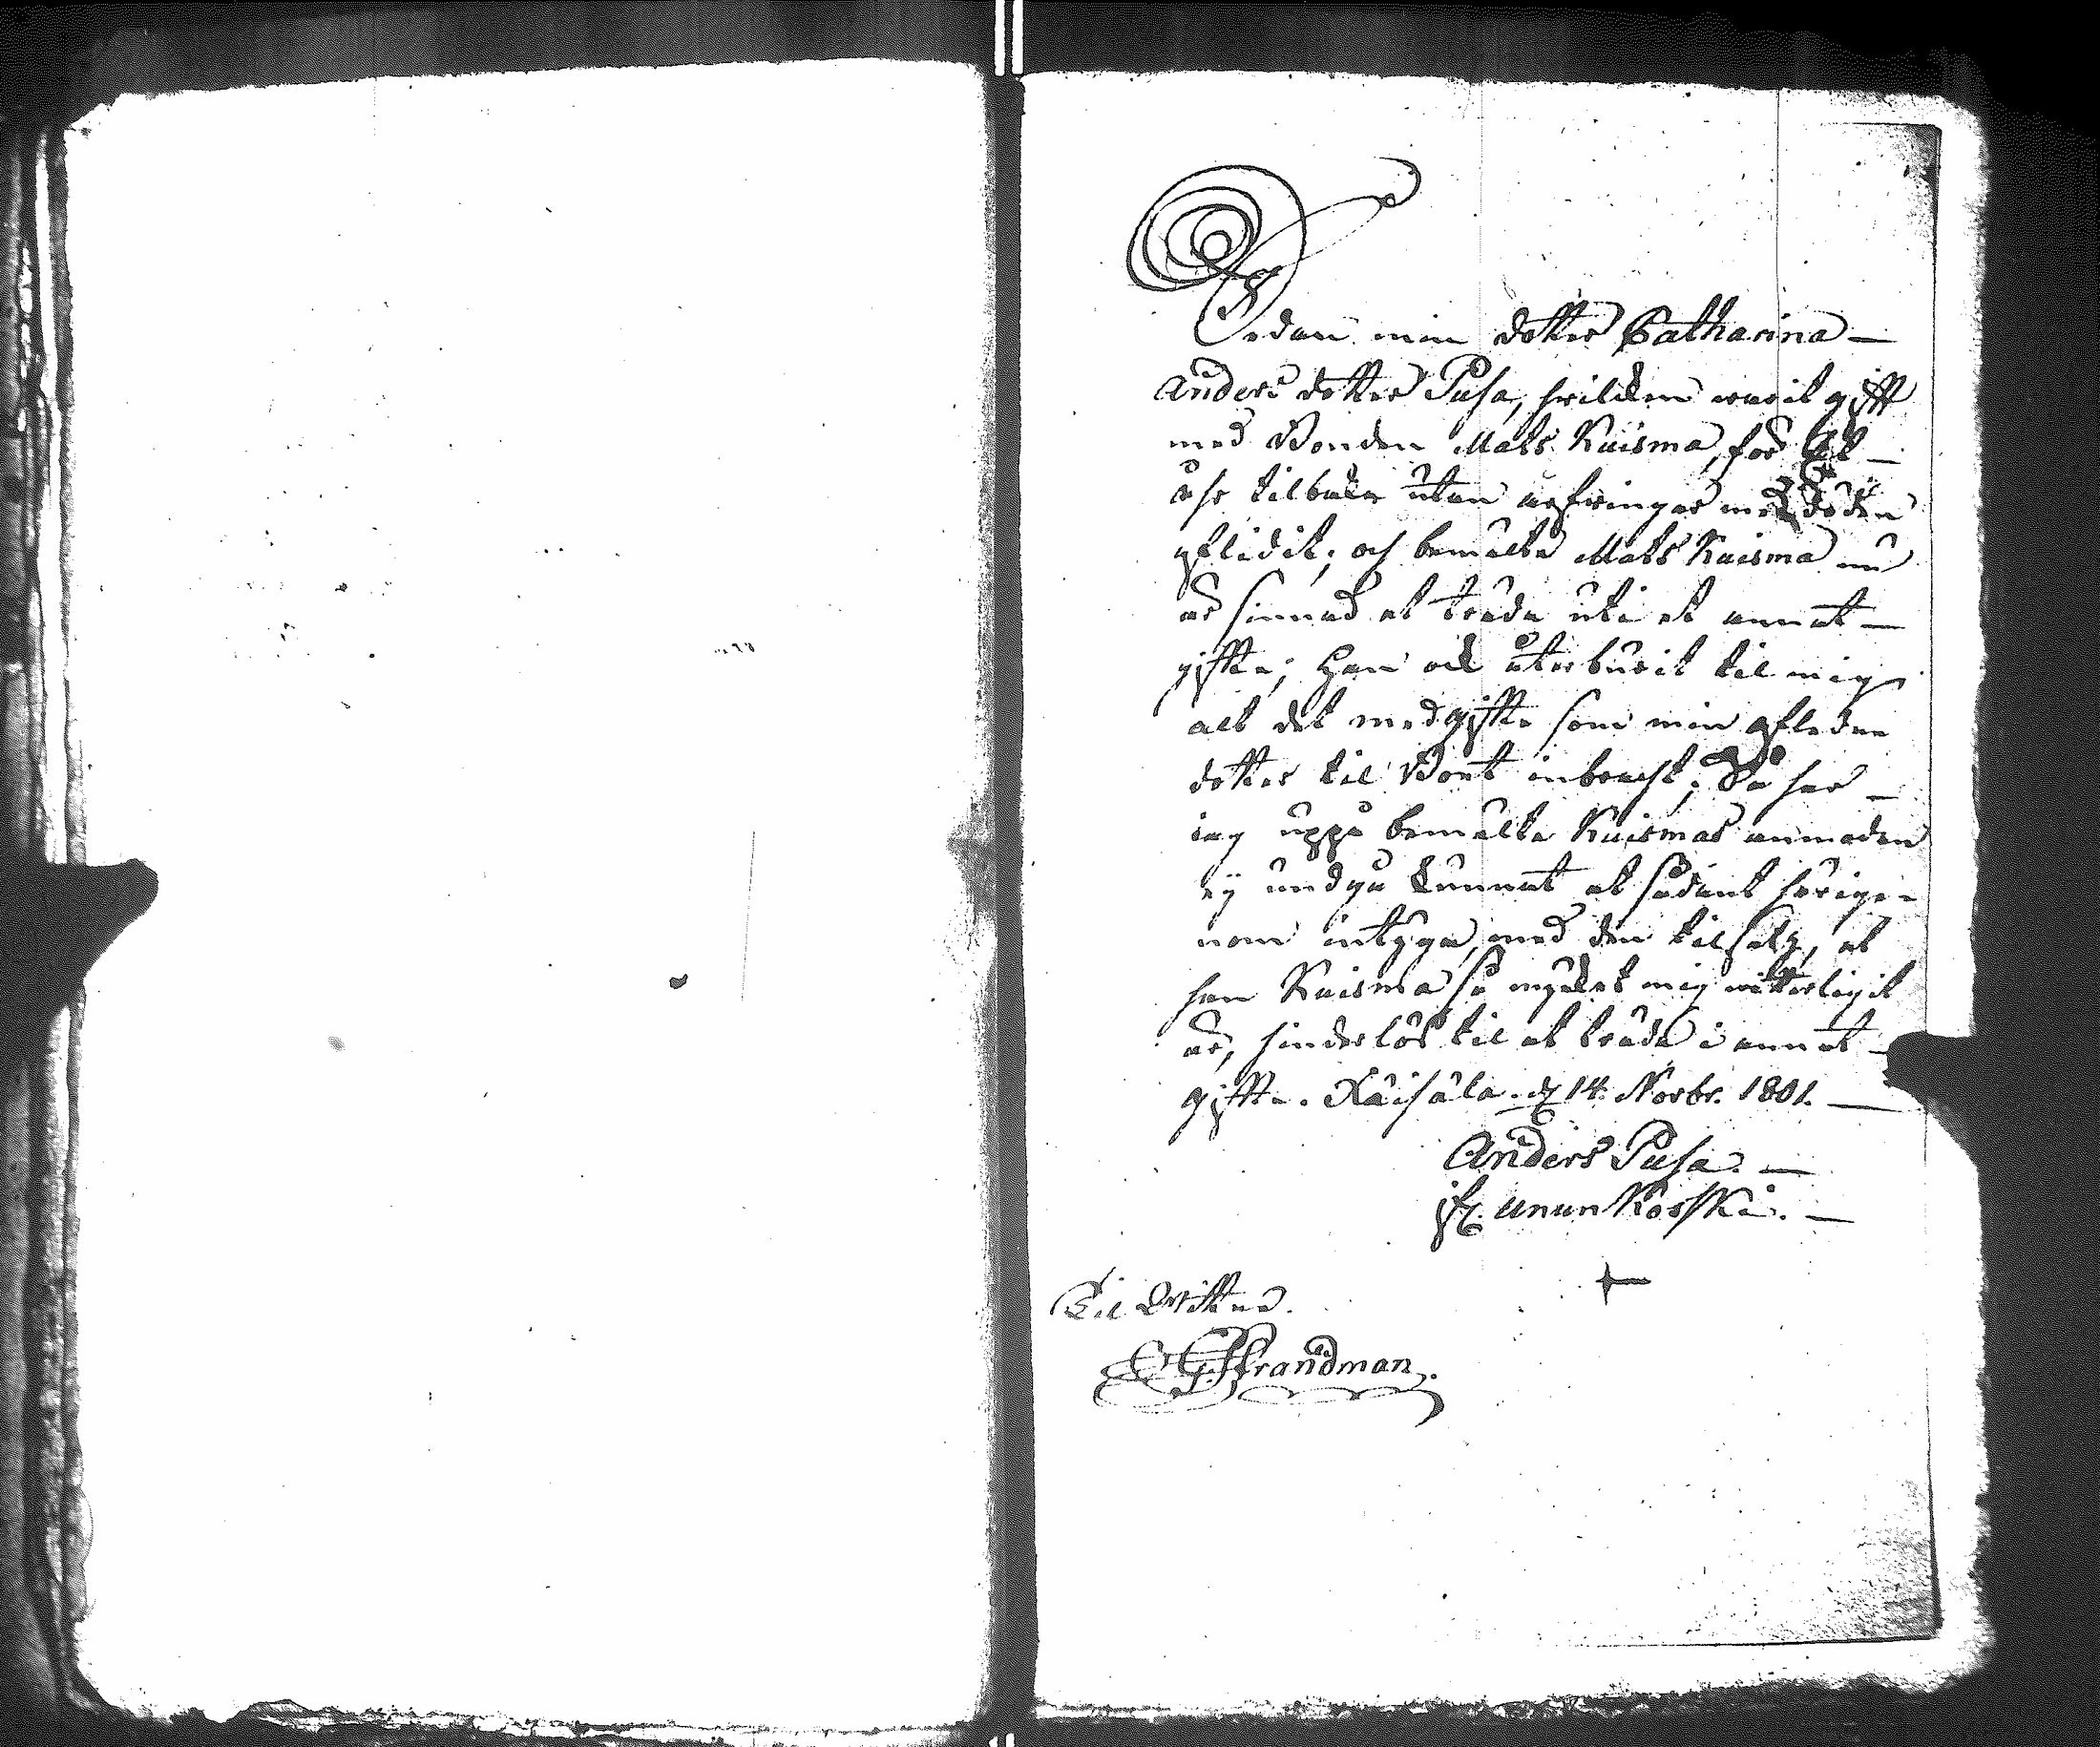 Sedan min dotter Catharina —
Anders dotter Pusa, hvilken varit gift
med Bonden Mats Kuisma, för Ett —
åhr tilbaka utan arfvingar med döden
afledit, och bemälte Mats Kuisma nu
är sinnad at träda uti et annat —
gifte; Han ock återburit til mig
alt det medgifte som min afledne
dotter til Boet inbracht; Så har —
iag uppå bemälte Kuismas anmodan
ej undgå kunnat at sådant härige-
nom intyga, med den tilsats, at
han Kuisma så mycket mig vitterligit
är, hinderlös til at träda i annat —
gifte. Räisälä. d. 14. Novbr. 1801. —
Anders Pusa. —
ifr. Unnunkoski. —
Til Vittne.
G. Strandman.